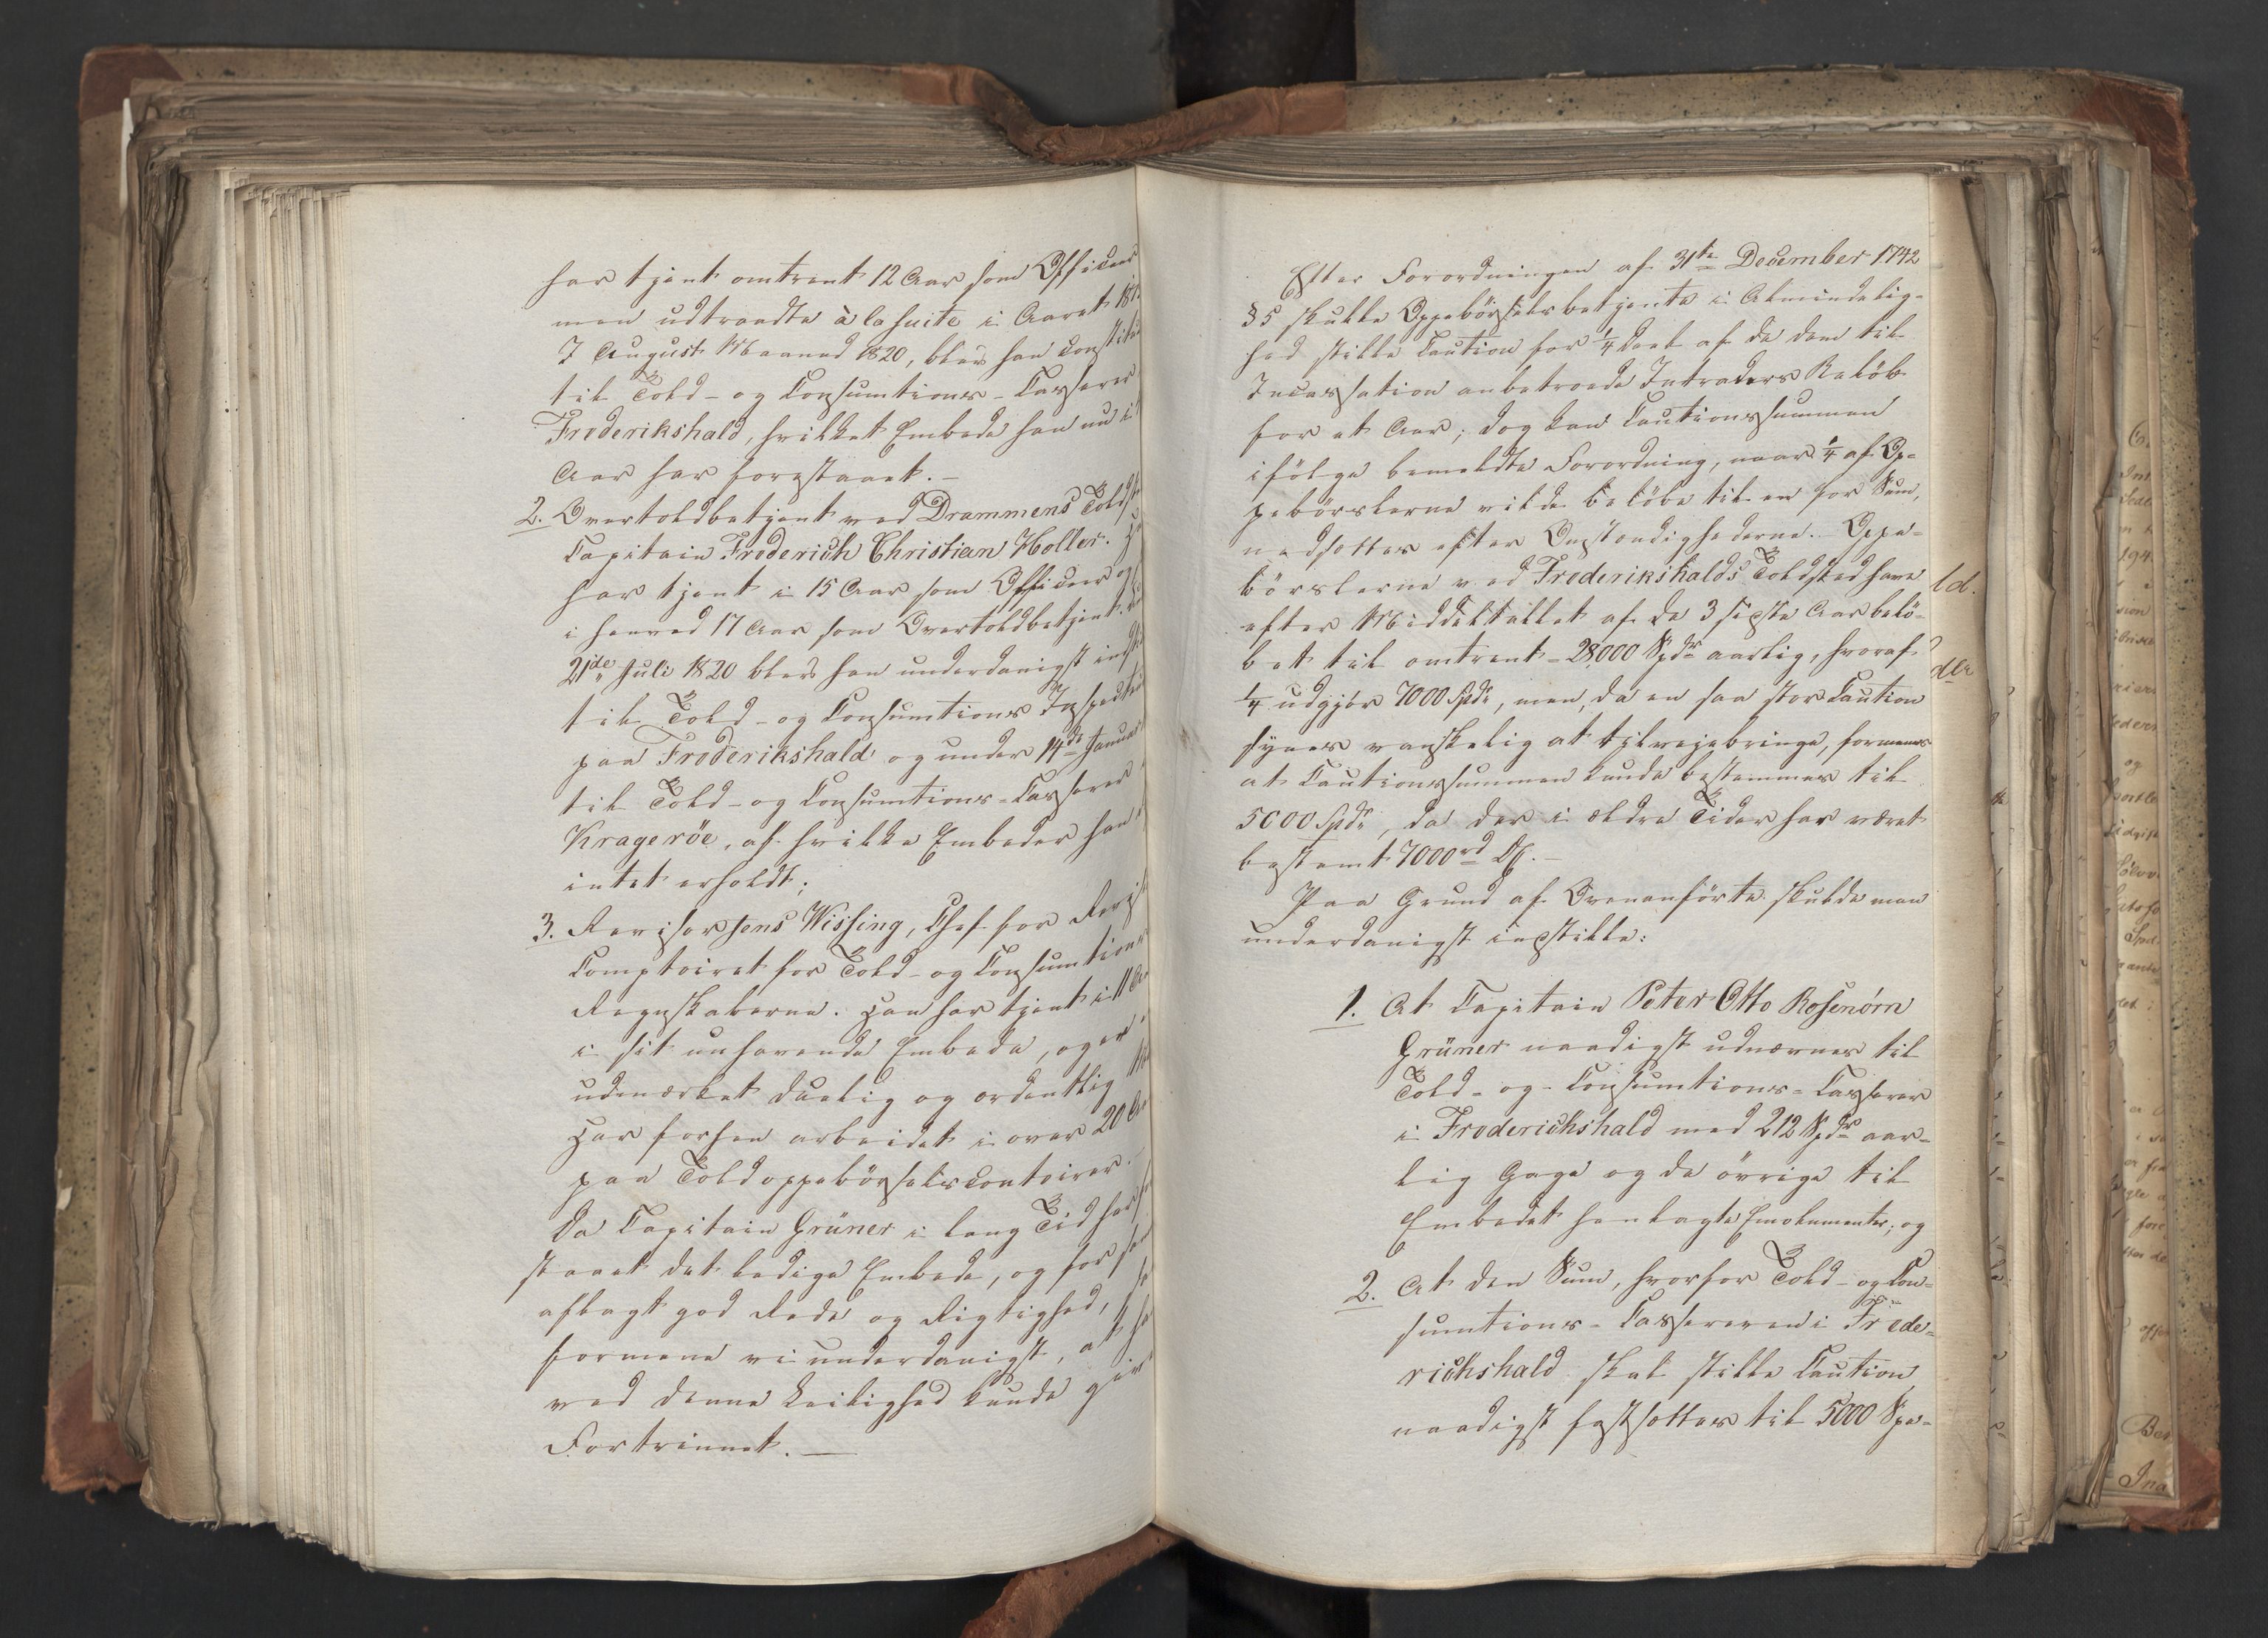 har tjent omtrent 12 Aar som Officeer
men udtraadte à la suite i Aaret 181
I August Maaned 1820, blev han constitu
til Told- og Consumtions-Casserer
Frederikshald, hvilket Embede han nu i
Aar har forestaaet.-
2. Overtoldbetjent ved Drammens Toldst
Capitain Frederich Christian Holler. Ha
har tjent i 15 Aar som Officeer og
i henved 17 Aar som Overtoldbetjent.
21de Juli 1820 blev han underdanigst indst
til Told- og Consumtions Inspecteur
paa Frederikshald og under 14de Januar
til Told- og Consumtions-Casserer
Krageröe, af hvilke Embeder han
intet erholdt;
3. Revisor Jens Wissing, Chef for Revis
Comptoiret for Told- og Consumtions
Regnskaberne. Han har tjent i 11 Aar
i sit unhavende Embede, og er
udmærket duelig og ordentlig
Har forhen arbeidet i over 20 Aar
paa Toldoppebörselscontoirer.-
Da Capitain Grüner i lang Tid har for
staaet det ledige Embede, og for
aflagt god Rede og Rigtighed,
formene vi underdanigst, at ha
ved denne Leilighed kunde giv
Fortrinnet.-
Efter Forordningen af 31te December 1742
§ 5 skulle Oppebörselsbetjente i Almindelig-
hed stille Caution for 1/4 Deel af de dem til
Incassation anbetroede Intraders Belöb
for et Aar; dog kan Cautionssummen
ifölge bemeldte Forordning, naar 1/4 af Op-
pebörslerne vilde belöbe til en for Sum,
nedsættes efter Omstændighederne. Oppe-
börslerne ved Frederikshalds Toldsted have
efter Middeltallet af de 3 sidste Aar belö-
bet til omtrent 28,000 Spdr aarlig, hvoraf
1/4 udgjör 7000 Spdr, men, da en saa stor Caution
synes vanskelig at tilvejebringe, formenes
at Cautionssummen kunde bestemmes til
5000 Spdr, da der i ældre Tider har været
bestemt 7000rd DC.-
Paa Grund af Ovenanförte skulde man
underdanigst indstille:
1. At Capitain Peter Otto Rosenörn
Grüner naadigst udnævnes til
Told- og Consumtions-Casserer
i Frederichshald med 212 Spdr aar-
lig Gage og de övrige til
Embedet henlagte Emolumenter; og
2. At den Sum, hvorfor Told- og Con-
sumtions-Cassereren i Frede-
richshald skal stille Caution
naadigst fastsættes til 5000 Spe-